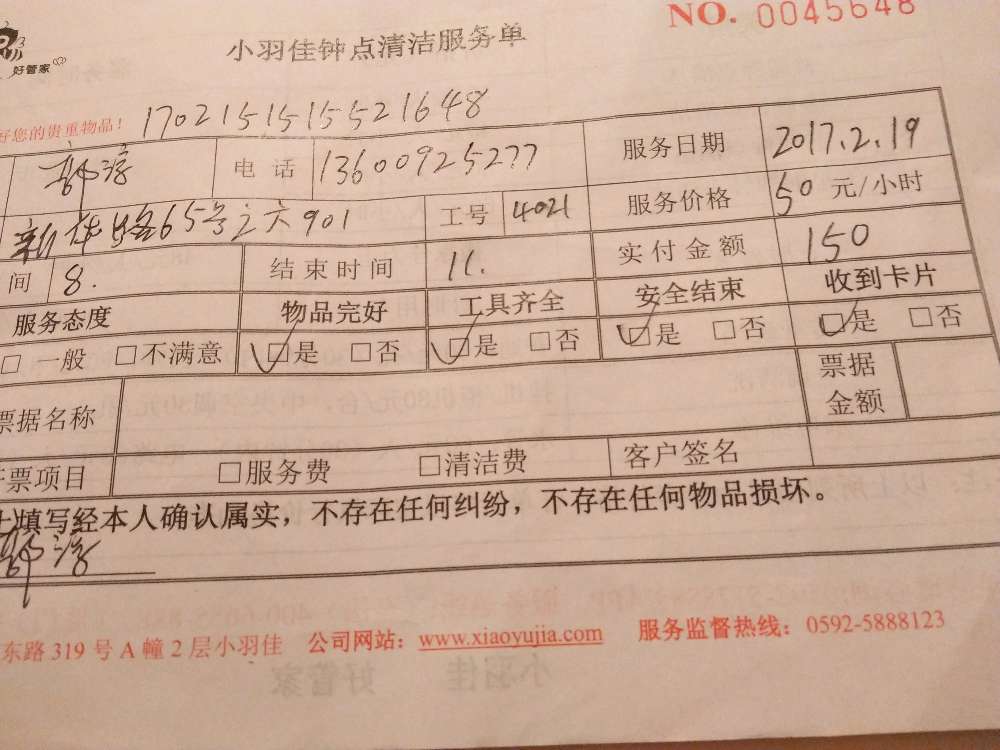 NO. 0045648
小羽佳钟点清洁服务单
好管家
好您的贵重物品! 1702151515521648
电 话 13600925277 服务日期 2017.2.19
新华路65号之六901 工号 4021 服务价格 50 元/小时
间 8. 结束时间 11. 实付金额 150
服务态度 物品完好 工具齐全 安全结束 收到卡片
□ 一般 □不满意 □是 □否 □是 □否 □是 □否 □是 □否
票据名称 票据金额
开票项目 □服务费 □清洁费 客户签名
上填写经本人确认属实,不存在任何纠纷,不存在任何物品损坏。
东路 319 号 A 幢 2 层小羽佳 公司网站:www.xiaoyujia.com 服务监督热线:0592-5888123